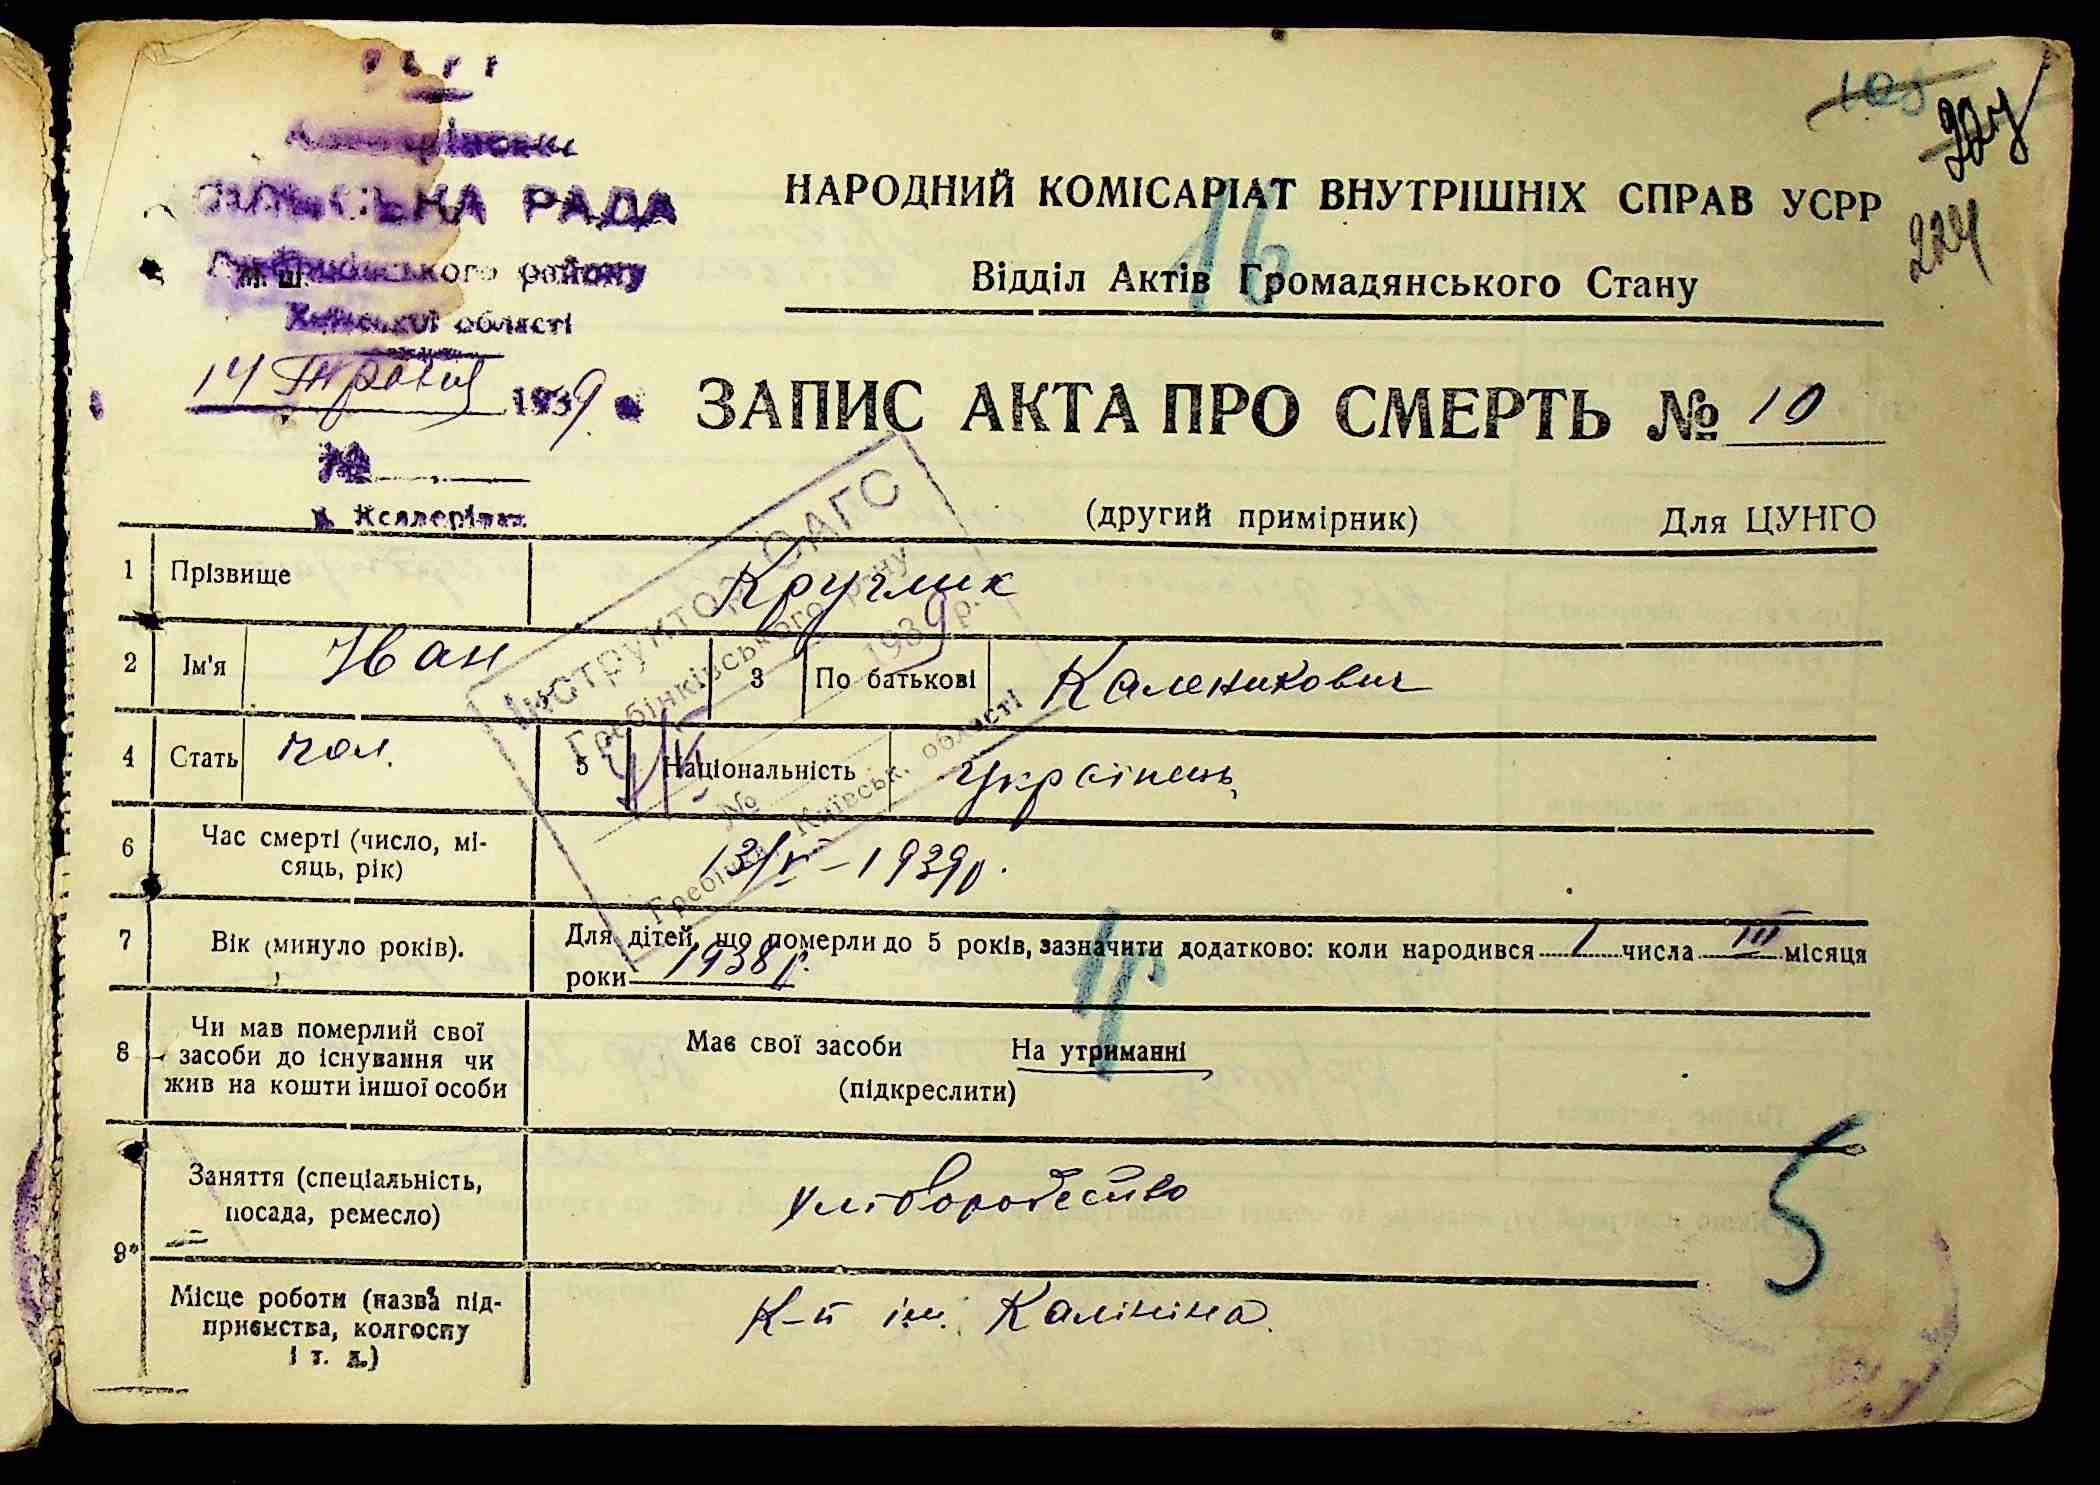 УСРР
СІЛЬСЬКА РАДА
Гребінківського району
Київської області
М. Ш.
14 Травня 1939
№
с. Ксаверівка
105
224
224
НАРОДНИЙ КОМІСАРІАТ ВНУТРІШНІХ СПРАВ УСРР
16
Відділ Актів Громадянського Стану
ЗАПИС АКТА ПРО СМЕРТЬ № 10
(другий примірник) Для ЦУНГО
Інструктор ОАГС
Гребінківського р-ну
1939 р.
№
Київськ. області
Гребінки
1 Прізвище Круглик
2 Ім'я Іван 3 По батькові Каленикович
4 Стать чол. 5 Національність Українець
6 Час смерті (число, мі-
сяць, рік) 13/V – 1939р.
7 Вік (минуло років). Для дітей, що померли до 5 років, зазначити додатково: коли народився 1 числа III місяця
роки 1938 р.
1р
8 Чи мав померлий свої
засоби до існування чи
жив на кошти іншої особи
Має свої засоби На утриманні
(підкреслити)
9* Заняття (спеціальність,
посада, ремесло) хліборобство
5
Місце роботи (назва під-
приємства, колгоспу
і т. д.) К-п ім. Калініна.